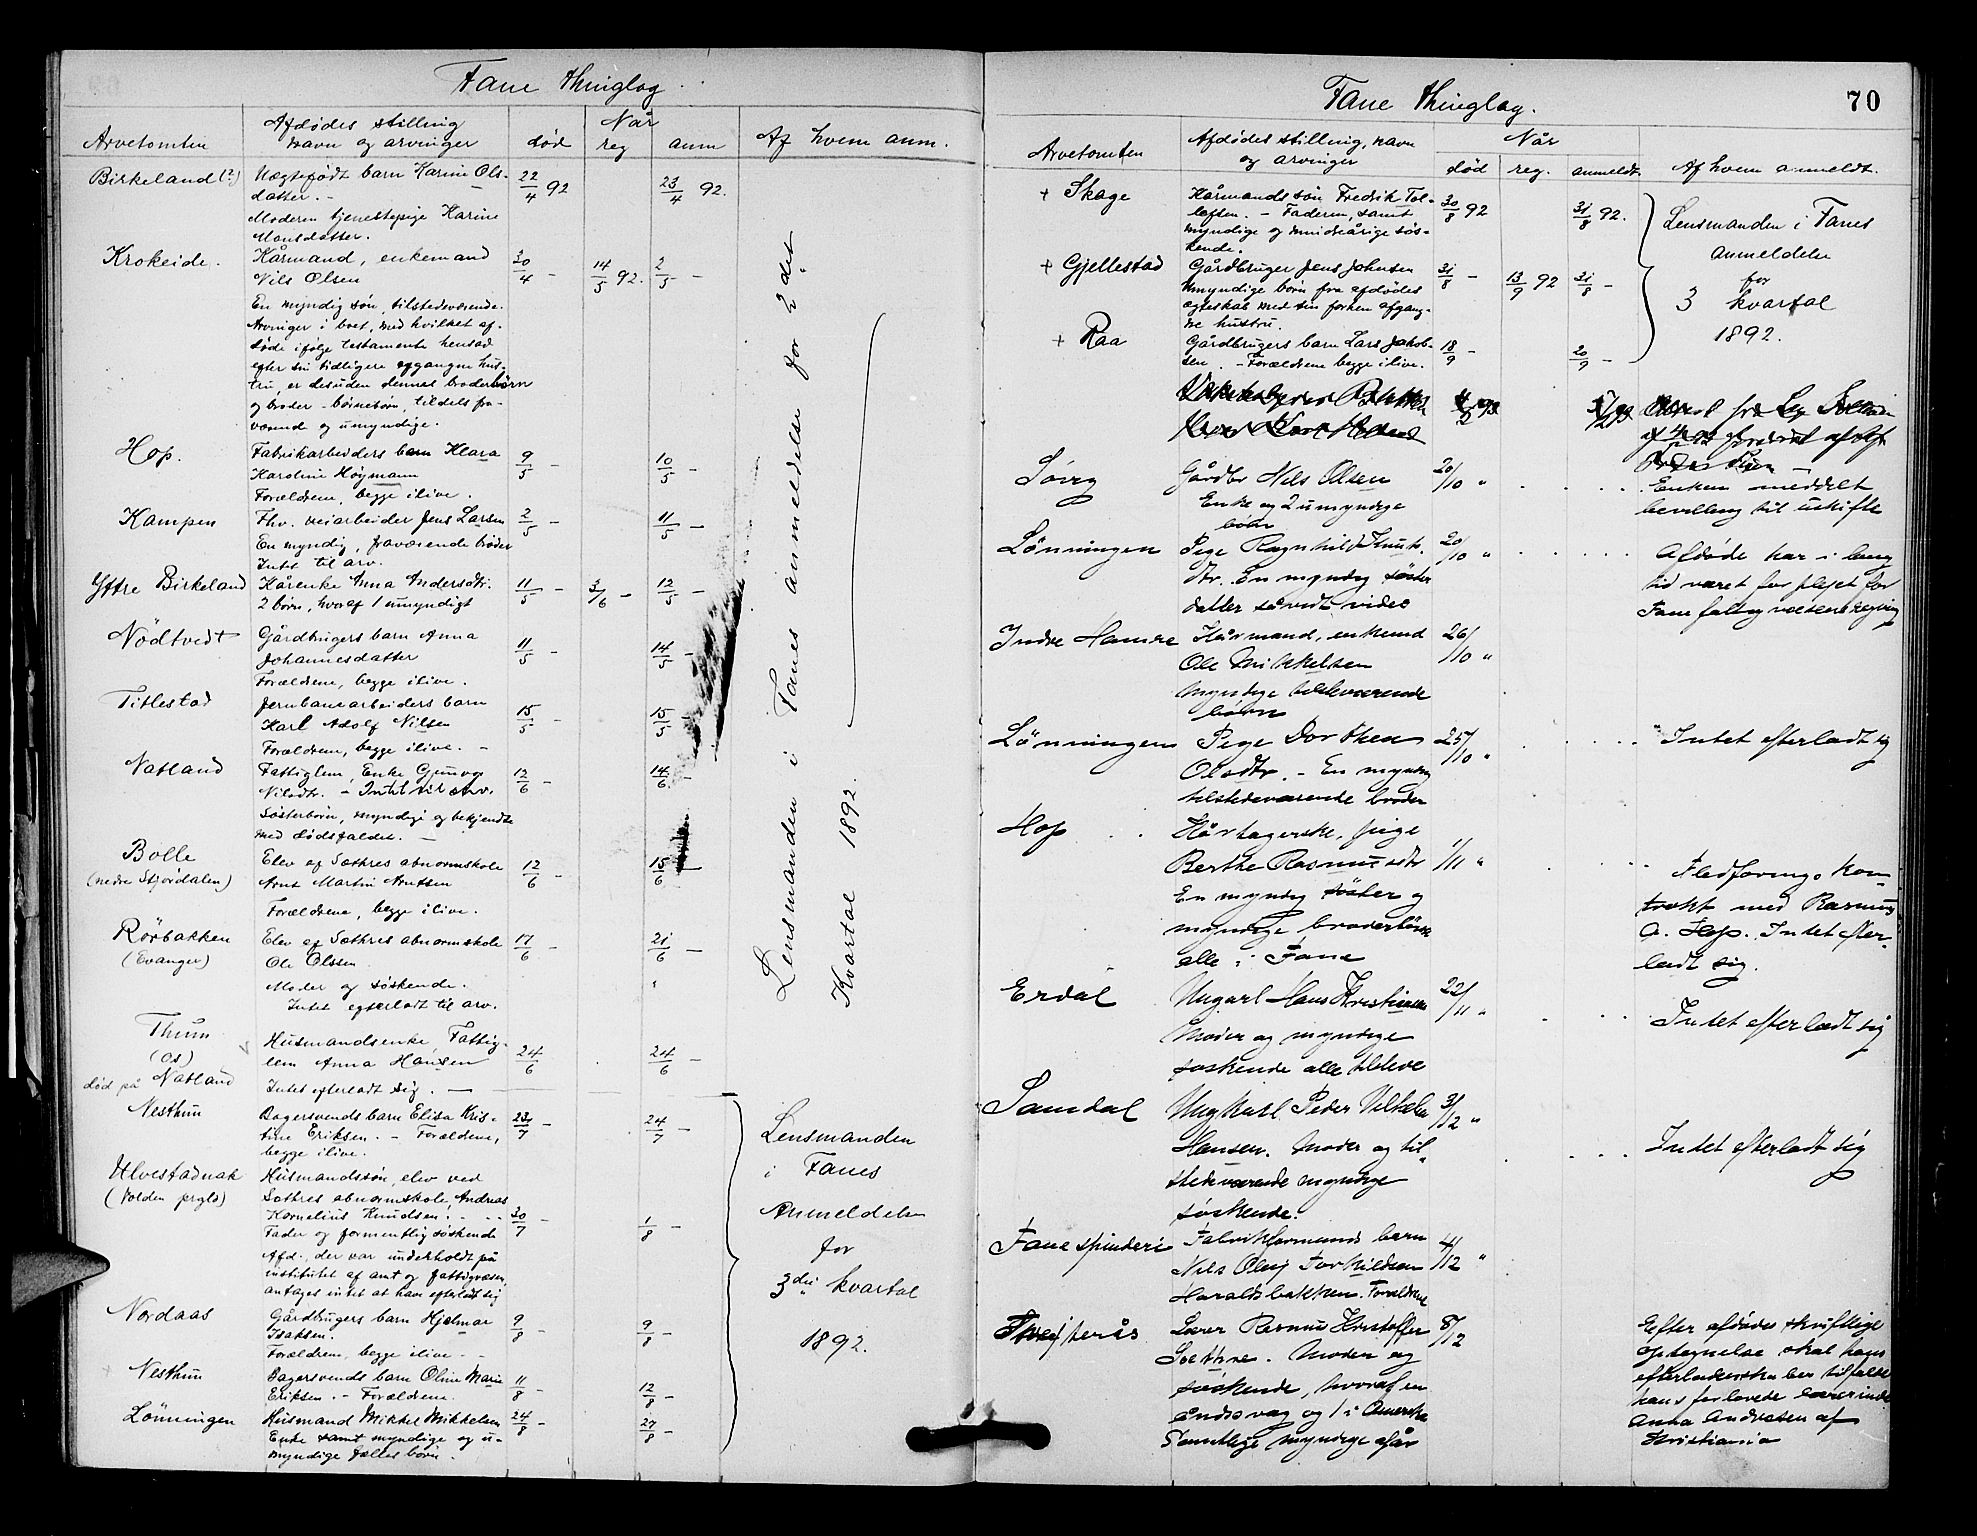 Fane thinglag.
Arvetomten
Afdødes stilling
navn og arvinger
Når
død
reg
anm
Af hvem anm.
Birkeland (?)
Uægtefødt barn Karine Ols-
datter. -
22/4 92
23/4 92.
Moderen tjenestepige Karine
Monsdatter.
Krokeide.
Kårmand, enkemand
Nils Olsen
30/4 -
14/5 92.
2/5 -
En myndig søn, tilstedeværende.
Arvinger i boet, med hvilket af-
døde ifølge testamente hensad
efter sin tidligere afgangne hus-
tru, er desuden dennes broderbørn
og broder-børnebørn, tildels fra-
værend og umyndige.
Hop.
Fabrikarbeiders barn Klara
Karoline Høymann
9/5 -
10/5 -
Forældrene, begge ilive.
Kampen
Fhv. veiarbeider Jens Larsen
2/5 -
11/5 -
En myndig, fraværende broder
Intet til arv.
Yttre Birkeland
Kårenke Anna Andersdtr.
2 børn, hvoraf 1 umyndigt
11/5 -
3/6 -
12/5 -
Nödtvedt
Gårdbrugers barn Anna
Johannesdatter
11/5 -
14/5 -
Forældrene, begge ilive.
Titlestad
Jernbanearbeiders barn
Karl Adolf Nilsen
15/5 -
15/5 -
Forældrene, begge ilive. -
Natland
Fattiglem, Enke Gunvor
Nilsdtr. - Intet til arv.
12/6 -
14/6. -
Søsterbørn, myndige og bekjendte
med dødsfaldet. -
Bolle
(nedre Stjørdalen)
Elev af Sæthres abnormskole
Arnt Martin Arntsen
12/6 -
15/6 -
Forældrene, begge ilive.
Rörbakken
(Evanger)
Elev af Sæthres abnormskole
Ole Olssen
17/6 -
21/6 -
Moder og søskende.
Intet efterladt til arv.
Thuen
(Os)
død på Natland
Husmandsenke, Fattig-
lem Anna Hansen
24/6
24/6 -
Intet efterladt sig. -
Lensmanden i Fanes anmeldelse for 2det
Kvartal 1892.
Nesthun
Bagersvends barn Elisa Kris-
tine Eriksen. - Forældrene,
begge ilive.
23/7 -
24/7 -
Ulvestadnak
(Volden prgld)
Husmandssøn, elev ved
Sæthres abnormskole, Andreas
Kornelius Knudsen.
30/7 -
1/8 -
Fader og formentlig søskende
Afd., der var underholdt på
institutet af amt og fattigvæsen,
antages intet at have efterladt sig
Nordaas
Gårdbrugers barn Hjalmar
Isaksen.
9/8 -
9/8 -
Forældrene, begge ilive. -
Nesthun
Bagersvends barn Oline Marie
Eriksen. - Forældrene.
11/8 -
12/8 -
Lönningen
Husmand Mikkel Mikkelsen
Enke samt myndige og u-
myndige fælles børn.
24/8 -
27/8 -
Lensmanden
i Fanes
Anmeldelse
for
3die kvartal
1892.
Fane thinglag.
70
Arvetomten
Afdødes stilling, navn
og arvinger
Når
død
reg.
anmeldt.
Af hvem anmeldt.
+ Skage
Kårmands søn Fredrik Tol-
lefsen. - Faderen, samt
myndige og mindreårige søs-
kende.
30/8 92
31/8 92.
+ Gjellestad
Gårdbruger Jens Johnsen
Umyndige børn fra afdødes
ægteskab med sin forhen afgang-
ne hustru.
31/8 -
13/9 92
31/8 -
+ Raa
Gårdbrugers barn Lars Jakob-
sen. - Forældrene begge ilive.
18/9 -
20/9 -
Lensmanden i Fanes
anmeldelse
for
3 kvartal
1892.
Sövig
Gårdbr Nils Olsen
Enke og 2 umyndige
børn
20/10 "
Enken meddelt
bevilling til uskifte
Lönningen
Pige Ragnhild Knuts-
dtr. En myndig søster
datter såvidt vides
20/10 "
Afdøde har i lang
tid været forplejet for
Fane fattigvæsens regning
Indre Hamre
Kårmand, enkemd
Ole Mikkelsen
myndige tilstedeværende
börn
26/10 "
Lönningen
Pige Dorthea
Olsdtr. - En myndig
tilstedeværende broder
25/10 "
Intet efterladt sig
Hop
Kårtagerske, pige
Berthe Rasmusdtr
En myndig søster og
myndige broderbørn
alle i Fane
1/11 "
Fledførings kon-
trakt med Rasmus
A. Hop. Intet efter-
ladt sig.
Erdal
Ungkarl Hans Kristiansen
Moder og myndige
søskende alle tilstede
22/11 "
Intet efterladt sig
Samdal
Ungkarl Peder Vilhelm
Hansen. Moder og til-
stedeværende myndige
søskende.
3/12 "
Intet efterladt sig
Fane spinderi
Fabrikformands barn
Nils Olaj Torkildsen
Haraldsbakken. Forældrene
4/12 "
Lærer Rasmus Kristoffer
Sæthre. Moder og
søskende, hvoraf en
åndssvag og 1 i Amerika
Samtlige myndige
8/12
Efter afdødes skriftlige
optegnelse skal hans
efterladenskaber tilfalde
hans forlovede lærerinde
Anna Andresen af
Kristiania